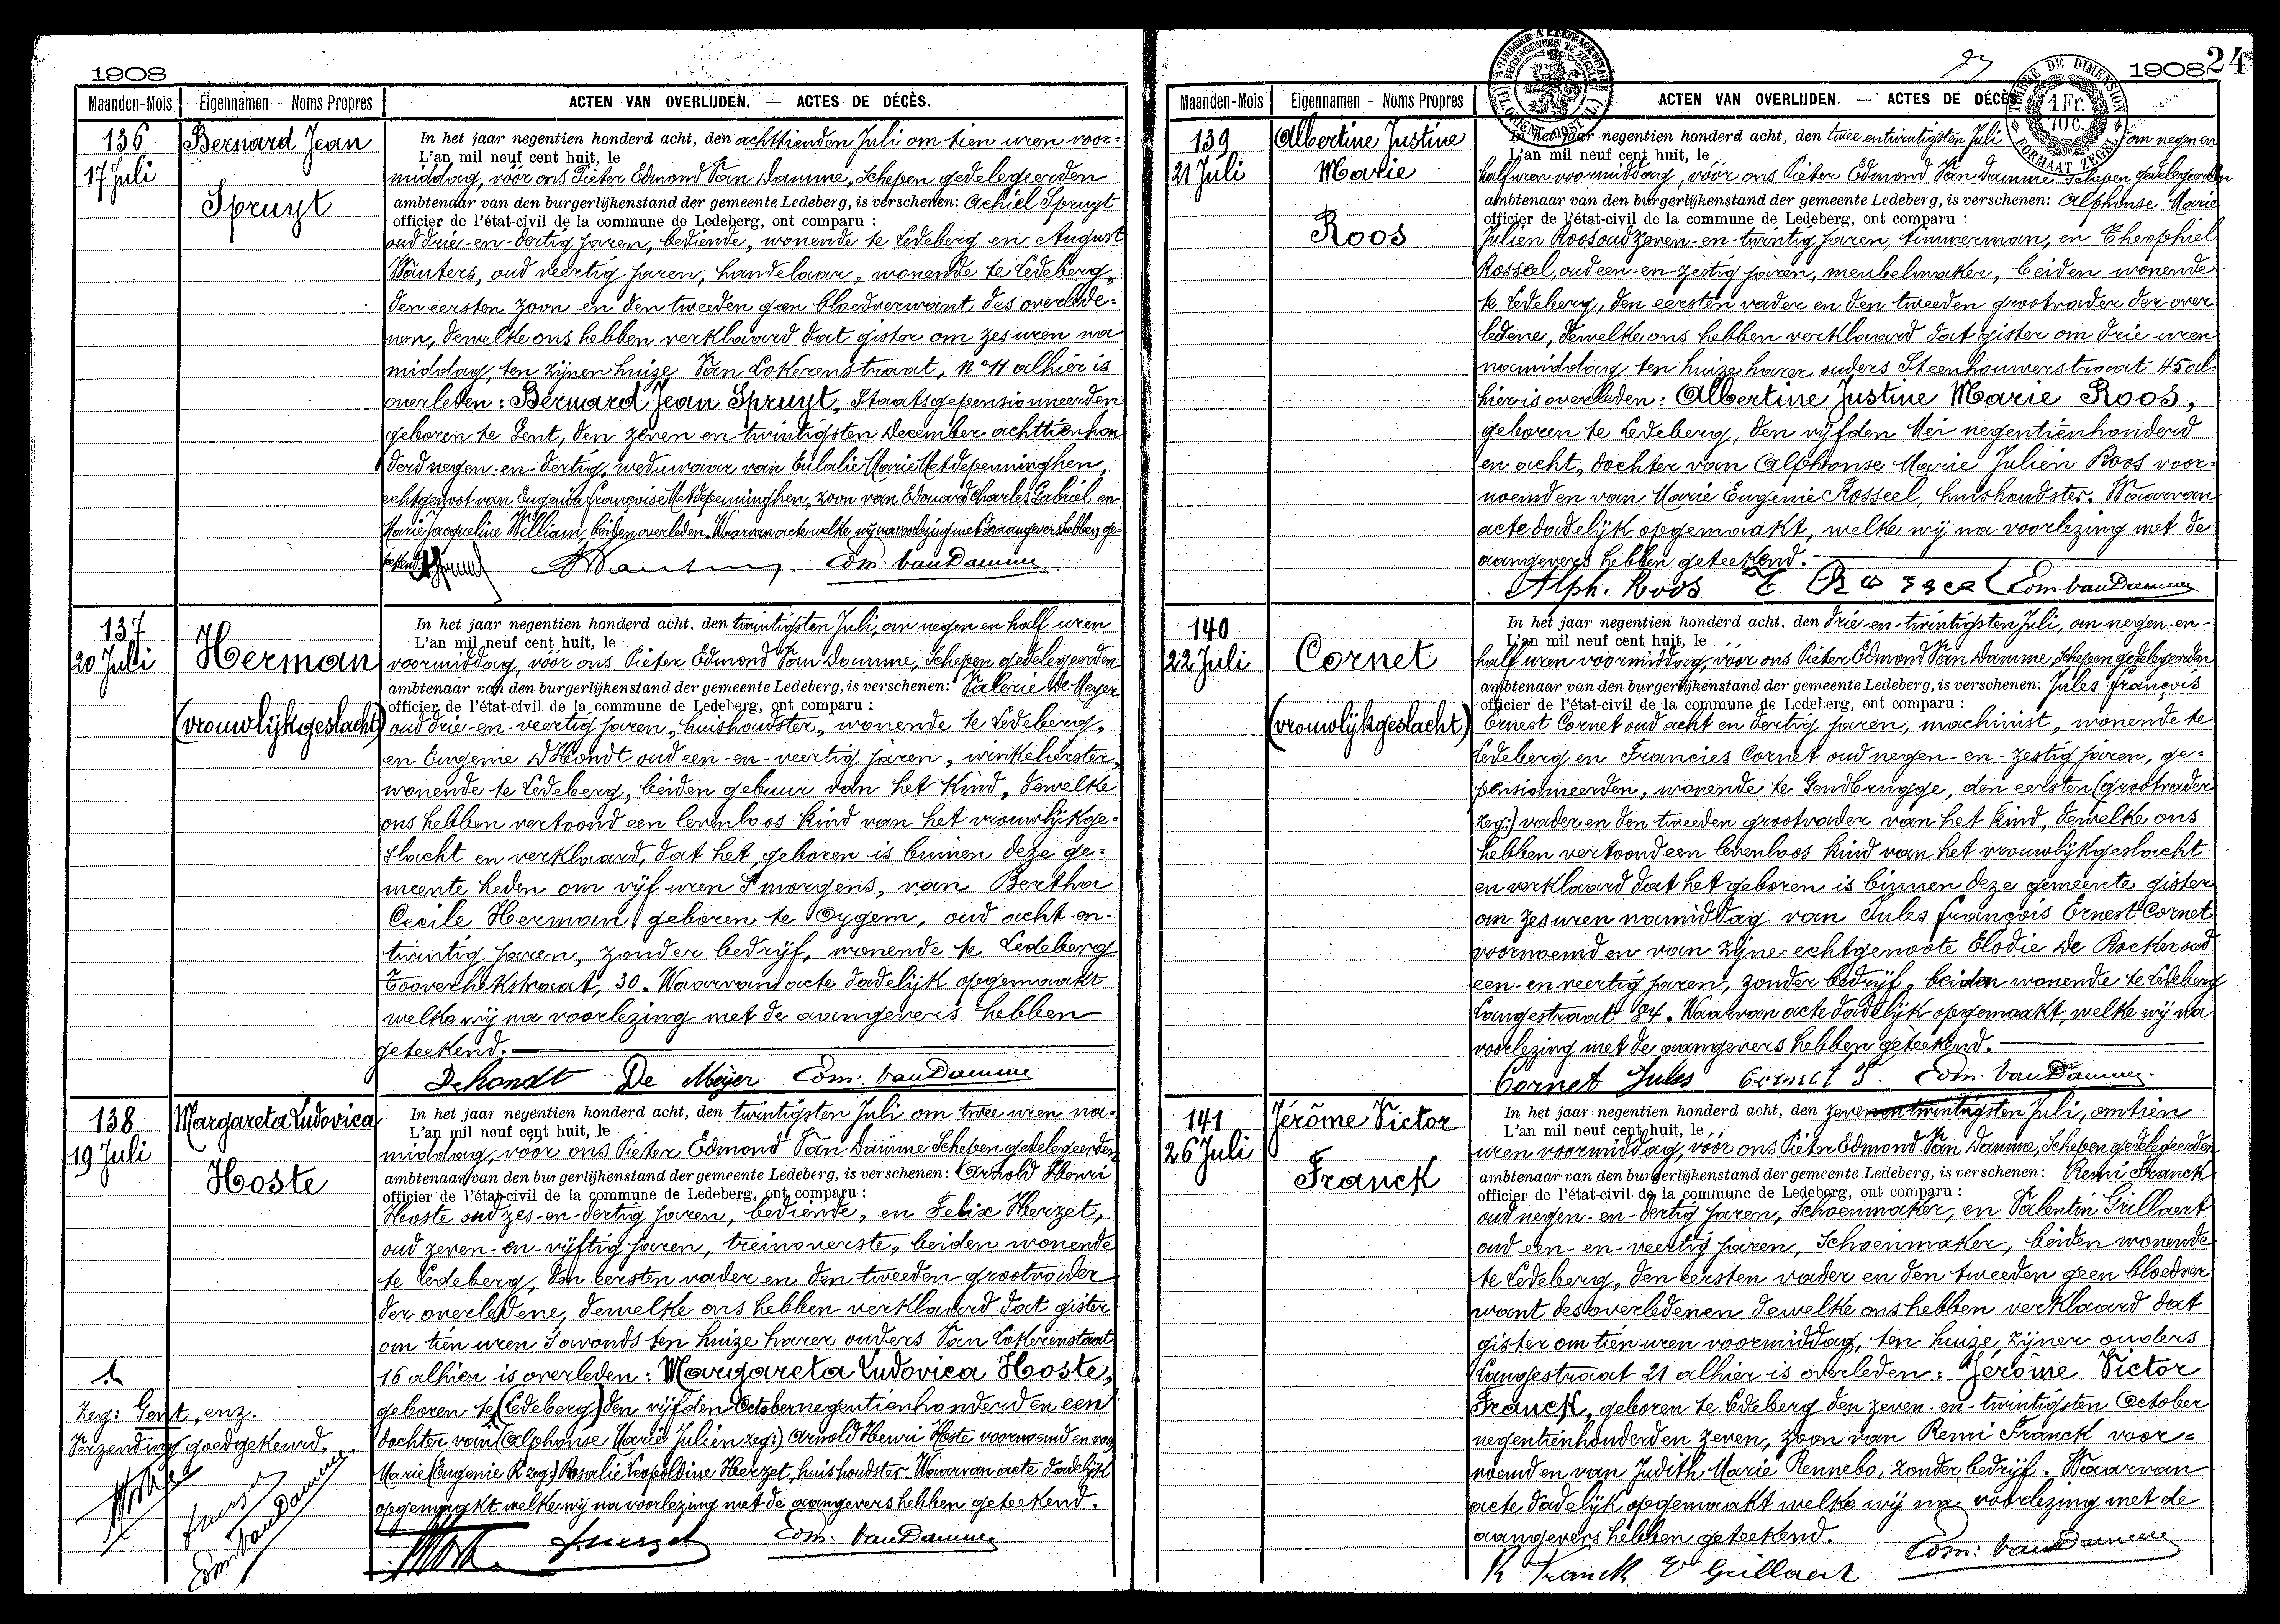 1908
Maanden-Mois Eigennamen - Noms Propres ACTEN VAN OVERLIJDEN. — ACTES DE DÉCÈS.
136
17 Juli
Bernard Jean
Spruyt
In het jaar negentien honderd acht, den achttienden Juli om tien uren voor-
L'an mil neuf cent huit, le
middag, vóór ons Pieter Edmond Van Damme, Schepen gedelegeerden
ambtenaar van den burgerlijkenstand der gemeente Ledeberg, is verschenen: Achiel Spruyt
officier de l'état-civil de la commune de Ledeberg, ont comparu :
oud drie-en-dertig jaren, bediende, wonende te Ledeberg en August
Wauters, oud veertig jaren, handelaar, wonende te Ledeberg,
den eersten zoon en den tweeden geen bloedverwant des overlede-
nen, dewelke ons hebben verklaard dat gister om zes uren na
middag, ten zijnen huize Van Lokerenstraat, n° 11 alhier is
overleden: Bernard Jean Spruyt, Staatsgepensionneerden
geboren te Gent, den zeven en twintigsten December achttienhon
derd negen-en-dertig, weduwaar van Eulalie Marie Metdepenninghen,
echtgenoot van Eugenia Françoise Metdepenninghen, zoon van Edouard Charles Gabriel en
Marie Jacqueline William, beiden overleden. Waarvan acte welke wij na voorlezing met de aangevers hebben ge-
teekend.
A Wauters Edm. Van Damme
137
20 Juli
Herman
(vrouwlijkgeslacht)
In het jaar negentien honderd acht, den twintigsten Juli, om negen en half uren
L'an mil neuf cent huit, le
voormiddag, vóór ons Pieter Edmond Van Damme, Schepen gedelegeerden
ambtenaar van den burgerlijkenstand der gemeente Ledeberg, is verschenen: Valerie De Meyer
officier de l'état-civil de la commune de Ledeberg, ont comparu :
oud drie-en-veertig jaren, huishoudster, wonende te Ledeberg,
en Eugenie D'Hondt oud een-en-veertig jaren, winkelierster,
wonende te Ledeberg, beiden gebuur van het kind, dewelke
ons hebben vertoond een levenloos kind van het vrouwlijkge-
slacht en verklaard, dat het geboren is binnen deze ge-
meente heden om vijf uren 's morgens, van Bertha
Cecile Herman, geboren te Oygem, oud acht-en-
twintig jaren, zonder bedrijf, wonende te Ledeberg
Tooverhekstraat, 30. Waarvan acte dadelijk opgemaakt
welke wij na voorlezing met de aangevers hebben
geteekend.
Dehondt De Meÿer Edm. Van Damme
138
19 Juli
Margareta Ludovica
Hoste
In het jaar negentien honderd acht, den twintigsten Juli om twee uren na-
L'an mil neuf cent huit, le
middag, vóór ons Pieter Edmond Van Damme Schepen gedelegeerden
ambtenaar van den burgerlijkenstand der gemeente Ledeberg, is verschenen: Arnold Henri
officier de l'état-civil de la commune de Ledeberg, ont comparu :
Hoste oud zes-en-dertig jaren, bediende, en Felix Herzet,
oud zeven-en-vijftig jaren, treinoverste, beiden wonende
te Ledeberg, den eersten vader en den tweeden grootvader
der overledene, dewelke ons hebben verklaard dat gister
om tien uren 's avonds ten huize harer ouders Van Lokerenstraat
16 alhier is overleden: Margareta Ludovica Hoste,
geboren te (Ledeberg) den vijfden October negentienhonderd en een
dochter van (Alphonse Marie Julien zeg:) Arnold Henri Hoste voornoemd en van
Marie (Eugenie R zeg:) Rosalie Leopoldine Herzet, huishoudster. Waarvan acte dadelijk
opgemaakt welke wij na voorlezing met de aangevers hebben geteekend.
Zeg: Gent, enz.
Verzending goedgekeurd.
Edm Van Damme
Hoste Fherzet Edm. Van Damme
27
1908 24
TIMBRE DE DIMENSION
1 Fr.
10 C.
FORMAAT ZEGEL
Maanden-Mois Eigennamen - Noms Propres ACTEN VAN OVERLIJDEN. — ACTES DE DÉCÈS
139
21 Juli
Albertine Justine
Marie
Roos
In het jaar negentien honderd acht, den twee en twintigsten Juli om negen en
L'an mil neuf cent huit, le
half uren voormiddag, vóór ons Pieter Edmond Van Damme Schepen gedelegeerden
ambtenaar van den burgerlijkenstand der gemeente Ledeberg, is verschenen: Alphonse Marie
officier de l'état-civil de la commune de Ledeberg, ont comparu :
Julien Roos oud zeven-en-twintig jaren, timmerman, en Theophiel
Rosseel, oud een-en-zestig jaren, meubelmaker, beiden wonende
te Ledeberg, den eersten vader en den tweeden grootvader der over
ledene, dewelke ons hebben verklaard dat gister om drie uren
namiddag ten huize harer ouders Steenhouwerstraat 45 al-
hier is overleden: Albertine Justine Marie Roos,
geboren te Ledeberg, den vijfden Mei negentienhonderd
en acht, dochter van Alphonse Marie Julien Roos voor-
noemd en van Marie Eugenie Rosseel, huishoudster. Waarvan
acte dadelijk opgemaakt, welke wij na voorlezing met de
aangevers hebben geteekend.
Alph. Roos T Rosseel Edm. Van Damme
140
22 Juli
Cornet
(vrouwlijkgeslacht)
In het jaar negentien honderd acht, den drie-en-twintigsten Juli, om negen-en-
L'an mil neuf cent huit, le
half uren voormiddag, vóór ons Pieter Edmond Van Damme, Schepen gedelegeerden
ambtenaar van den burgerlijkenstand der gemeente Ledeberg, is verschenen: Jules François
officier de l'état-civil de la commune de Ledeberg, ont comparu :
Ernest Cornet oud acht en dertig jaren, machinist, wonende te
Ledeberg en Francies Cornet oud negen-en-zestig jaren, ge-
pensionneerden, wonende te Gendbrugge, den eersten (grootvader
zeg:) vader en den tweeden grootvader van het kind, dewelke ons
hebben vertoond een levenloos kind van het vrouwlijkgeslacht
en verklaard dat het geboren is binnen deze gemeente gister
om zes uren namiddag van Jules François Ernest Cornet
voornoemd en van zijne echtgenoote Elodie De Rocker oud
een-en-veertig jaren, zonder bedrijf, beiden wonende te Ledeberg
Langestraat 84. Waarvan acte dadelijk opgemaakt, welke wij na
voorlezing met de aangevers hebben geteekend.
Cornet Jules Cornet F. Edm. Van Damme
141
26 Juli
Jérôme Victor
Franck
In het jaar negentien honderd acht, den zeven en twintigsten Juli, om tien
L'an mil neuf cent huit, le
uren voormiddag, vóór ons Pieter Edmond Van Damme, Schepen gedelegeerden
ambtenaar van den burgerlijkenstand der gemeente Ledeberg, is verschenen: Remi Franck
officier de l'état-civil de la commune de Ledeberg, ont comparu :
oud negen-en-dertig jaren, Schoenmaker, en Valentin Grillaert
oud een-en-veertig jaren, Schoenmaker, beiden wonende
te Ledeberg, den eersten vader en den tweeden geen bloedver
want des overledenen dewelke ons hebben verklaard dat
gister om tien uren voormiddag, ten huize zijner ouders
Langestraat 21 alhier is overleden: Jérôme Victor
Franck, geboren te Ledeberg den zeven-en-twintigsten October
negentienhonderd en zeven, zoon van Remi Franck voor-
noemd en van Judith Marie Rennebo, zonder bedrijf. Waarvan
acte dadelijk opgemaakt welke wij na voorlezing met de
aangevers hebben geteekend.
R Franck Vn Grillaert Edm: Van Damme